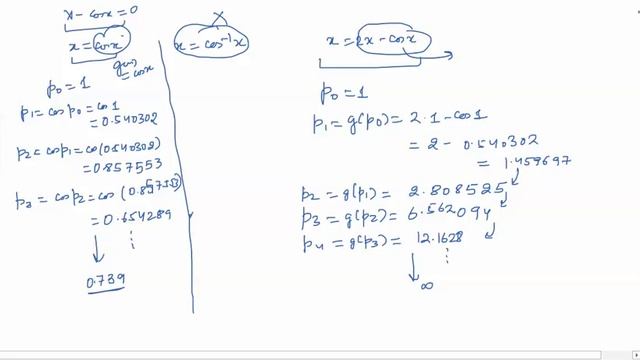 x - cosx = 0
x = cosx
g(x) = cosx
p₀ = 1
p₁ = cos p₀ = cos 1
= 0.540302
p₂ = cos p₁ = cos(0.540302)
= 0.857553
p₃ = cos p₂ = cos (0.857553)
= 0.654289
⋮
0.739
X
x = cos⁻¹x
x = 2x - cosx
p₀ = 1
p₁ = g(p₀) = 2·1 - cos1
= 2 - 0.540302
= 1.459697
p₂ = g(p₁) = 2.808525
p₃ = g(p₂) = 6.562094
p₄ = g(p₃) = 12.1628
⋮
∞